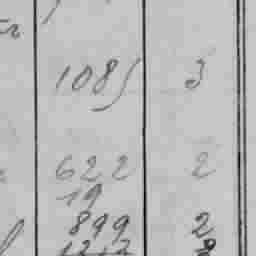 1085 3
622 2
19
899 2